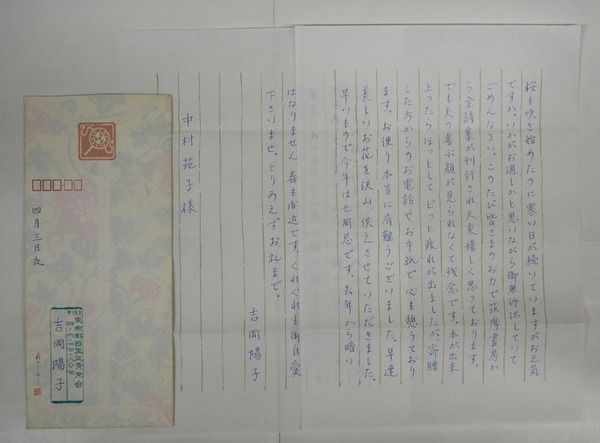 桜も咲き始めたのに寒い日が続いていますがお元気
ですか。いかがお過しかと思いながら御無沙汰していて
ごめんなさい。このたび皆さまのお力で筑摩書房か
ら全詩集が刊行され大変嬉しく思っております。
でも夫の喜ぶ顔が見られなくて残念です。本が出来
上ったらほっとして、どっと疲れが出ましたが寄贈
した方からのお電話やお手紙で心も憩うており
ます。お便り本当に有難うございました。早速
美しいお花を沢山供えさせていただきました。
早いもので今年は七回忌です。お年から暗い
はなりません 春も間近です。くれぐれも御自愛
下さいませ。とりあえずお礼まで。
吉岡陽子
中村苑子様
四月三日
東京都目黒区青葉台
吉岡陽子